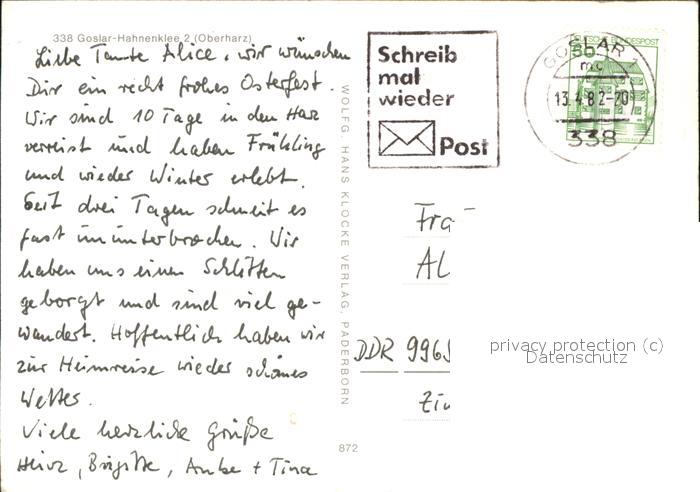 338 Goslar-Hahnenklee 2 (Oberharz)
Liebe Tante Alice, wir wünschen
Dir ein recht frohes Osterfest.
Wir sind 10 Tage in den Harz
verreist und haben Frühling
und wieder Winter erlebt.
Seit drei Tagen schneit es
fast ununterbrochen. Wir
haben uns einen Schlitten
geborgt und sind viel ge-
wandert. Hoffentlich haben wir
zur Heimreise wieder schönes
Wetter.
Viele herzliche Grüße
Heinz, Brigitte, Anke + Tina
WOLFG. HANS KLOCKE VERLAG, PADERBORN
872
Schreib
mal
wieder
Post
DEUTSCHE BUNDESPOST
50
GOSLAR 1
mg
13.4.82-20
338
Fra
Al
DDR 9965
privacy protection (c)
Datenschutz